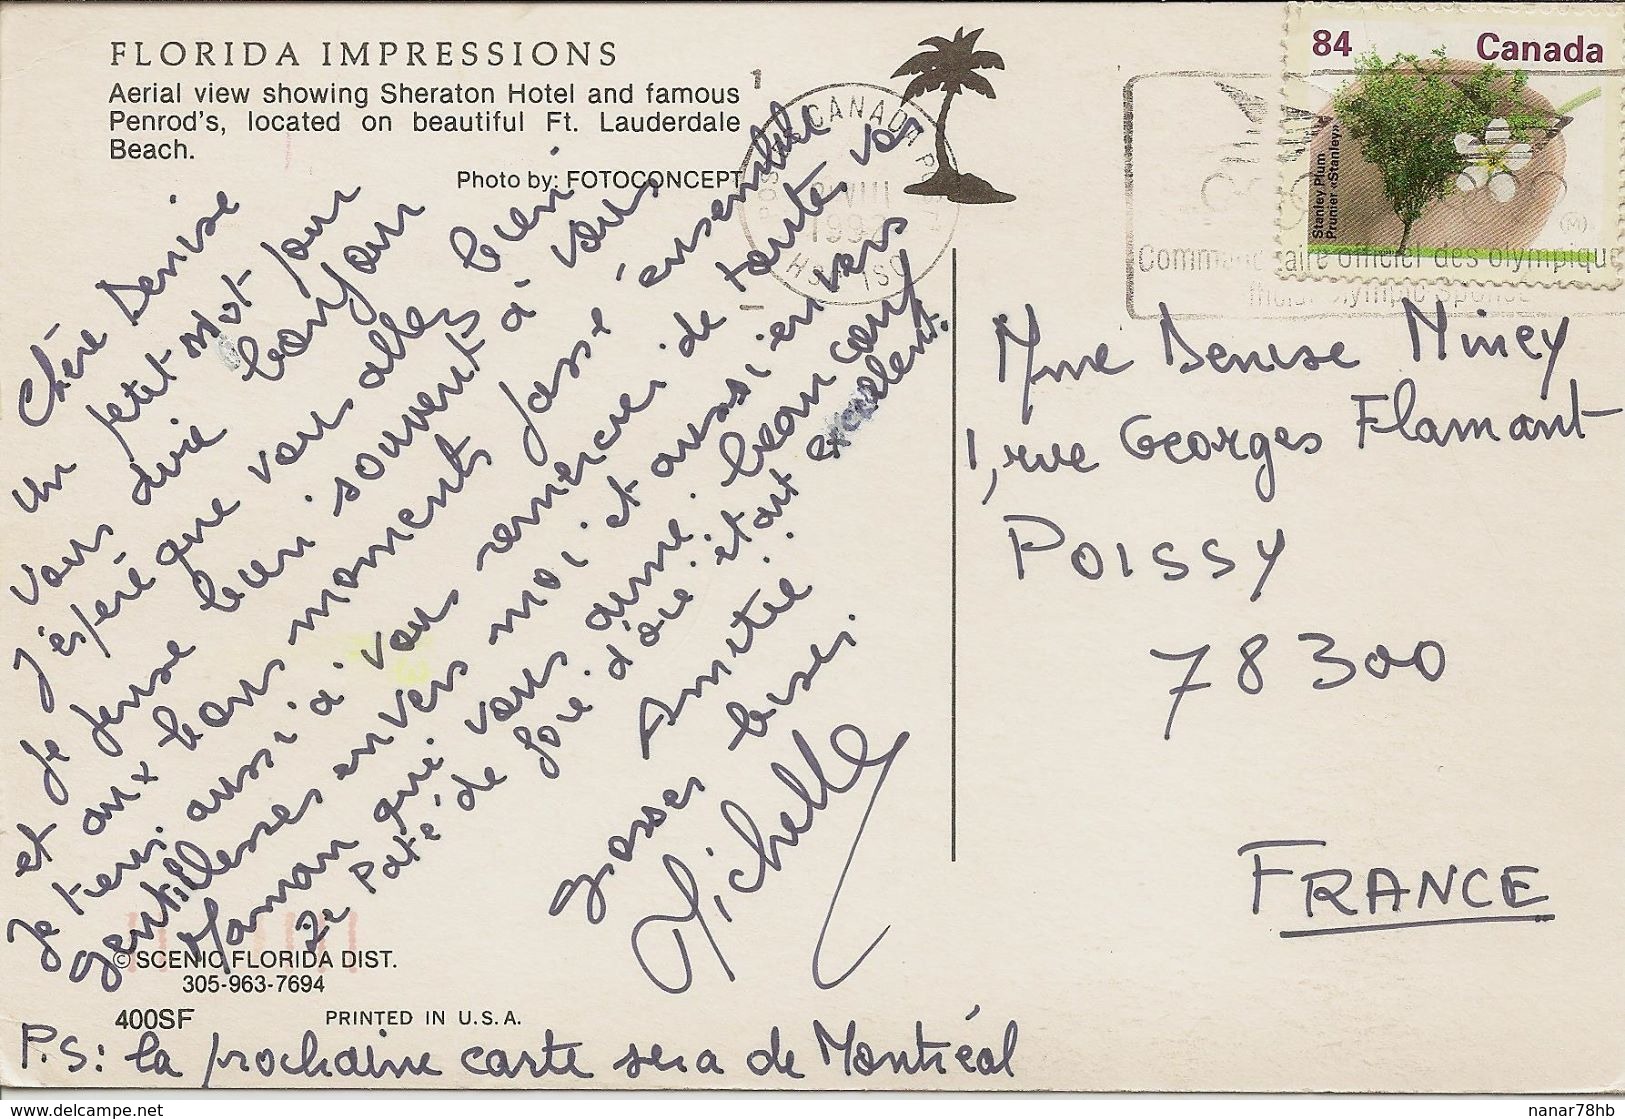 FLORIDA IMPRESSIONS
Aerial view showing Sheraton Hotel and famous
Penrod's, located on beautiful Ft. Lauderdale
Beach.
Photo by: FOTOCONCEPT
Chère Denise
Un petit mot pour
vous dire bonjour
J'espère que vous allez bien
et je pense bien souvent à vous
et aux bons moments passé ensemble
Je tiens aussi à vous remercier de toute vos
gentillesses envers moi et aussi envers
Maman qui vous aime beaucoup
Le Paté de foie d'oie étant excelent.
Amitié
grosses bises.
Michelle
© SCENIC FLORIDA DIST.
305-963-7694
400SF
PRINTED IN U.S.A.
P.S: la prochaine carte sera de Montréal
1
CANADA
VIII
1992
84
Canada
Stanley Plum
Prunier «Stanley»
officiel des olympique
Mme Denise Miney
1, rue Georges Flamant
POISSY
78300
FRANCE
www.delcampe.net
nanar78hb